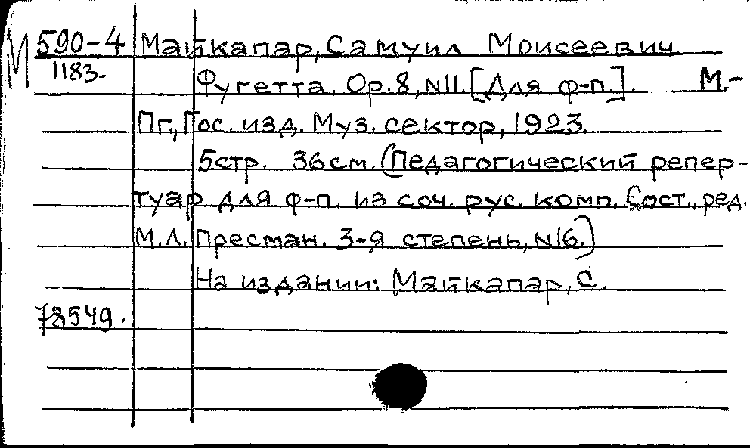 М 590-4 Майкапар, Самуил Моисеевич
1183-
Фугетта. Ор.8, N11. [Для ф-п.]. М.-
Пг., Гос. изд. Муз. сектор, 1923.
5стр. 36см. (Педагогический репер-
туар для ф-п. из соч. рус. комп. Сост., ред.
М.Л. Пресман. 3-я степень, N16.)
На издании: Майкапар, С.
78549.